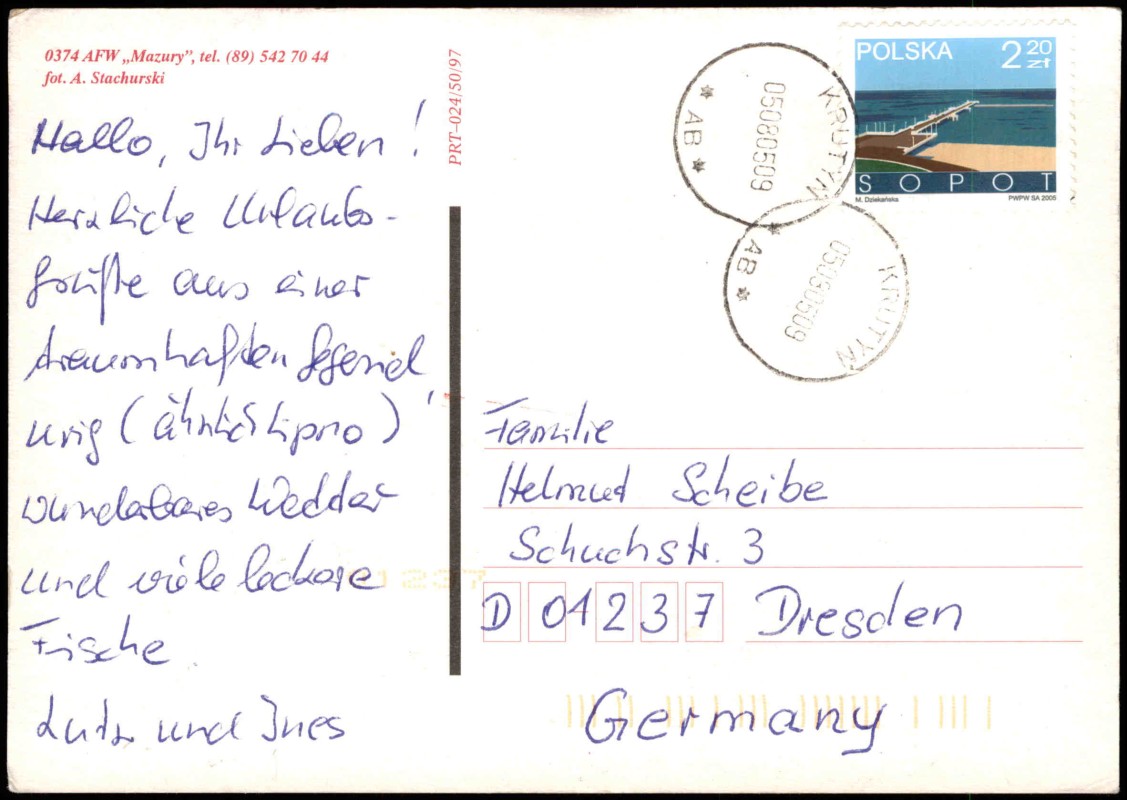 0374 AFW „Mazury”, tel. (89) 542 70 44
fot. A. Stachurski
PRT–024/50/97
Hallo, Ihr Lieben!
Herzliche Urlaubs-
grüße aus einer
traumhaften Gegend,
urig (ähnlich Lipno)
wunderbares Wetter
und viele leckere
Fische
Lutz und Ines
POLSKA 2 20 zł
SOPOT
M. Dziekańska PWPW SA 2005
KRUTYŃ
05080509
* AB *
KRUTYŃ
05080509
* AB *
Familie
Helmut Scheibe
Schuchstr. 3
D 01237 Dresden
Germany
01237